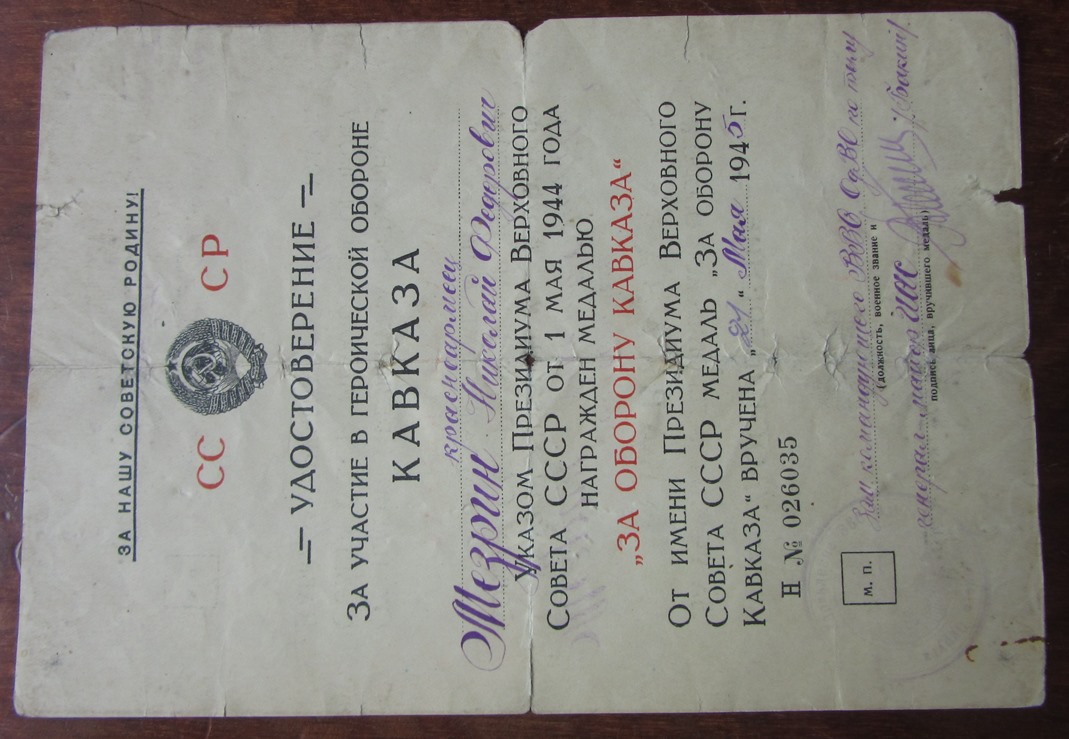 ЗА НАШУ СОВЕТСКУЮ РОДИНУ!
СС СР
УДОСТОВЕРЕНИЕ
ЗА УЧАСТИЕ В ГЕРОИЧЕСКОЙ ОБОРОНЕ
КАВКАЗА
красноармеец
Мезрин Николай Федорович
УКАЗОМ ПРЕЗИДИУМА ВЕРХОВНОГО
СОВЕТА СССР ОТ 1 МАЯ 1944 ГОДА
НАГРАЖДЕН МЕДАЛЬЮ
„ЗА ОБОРОНУ КАВКАЗА“
ОТ ИМЕНИ ПРЕЗИДИУМА ВЕРХОВНОГО
СОВЕТА СССР МЕДАЛЬ „ЗА ОБОРОНУ
КАВКАЗА“ ВРУЧЕНА „21“ Мая 1945 г.
Н № 026035
Зам командующего ВВС по тылу
(должность, военное звание и
М. П.
генерал-майор ИАС
подпись лица, вручившего медаль)